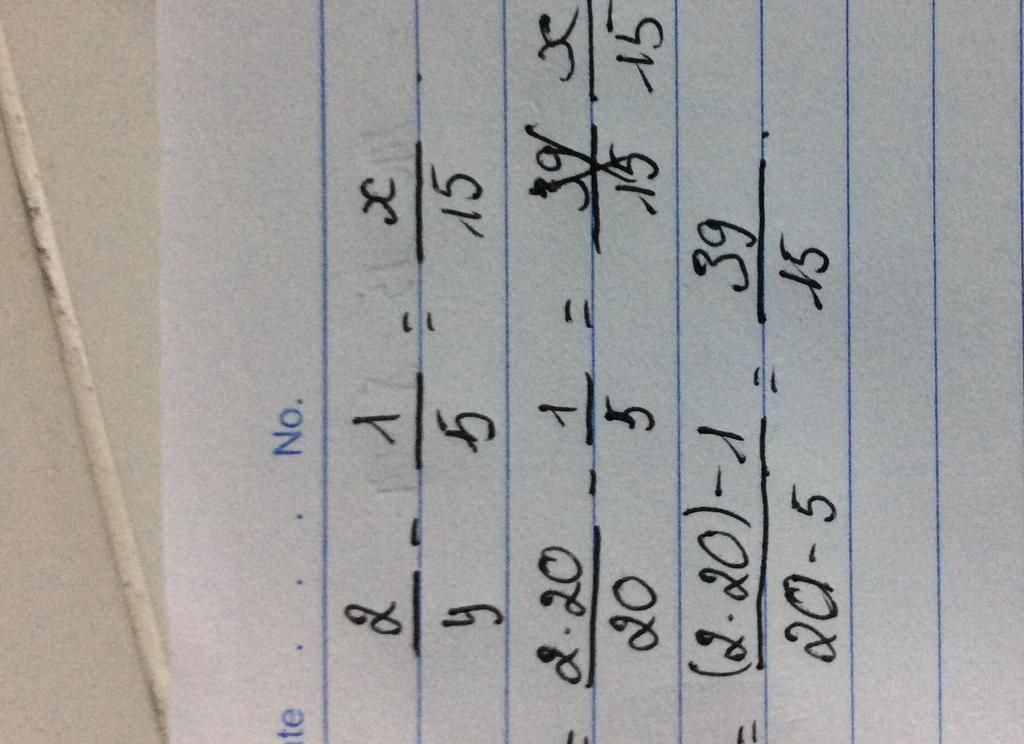 ate . . . No.
2/y - 1/5 = x/15 .
= 2·20/20 - 1/5 = 39/15 x/15
= (2·20)-1/20-5 = 39/15 .